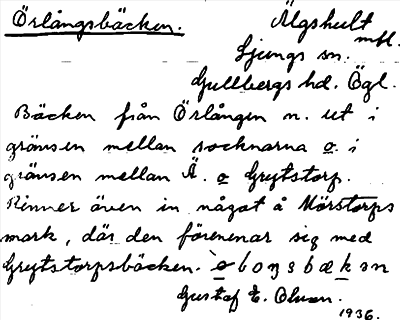 Örlångsbäcken. Älgshult mfl.
Ljungs sn.
Gullbergs hd. Ögl.
Bäcken från Örlången n. ut i
gränsen mellan socknarna o. i
gränsen mellan Ä. o Grytstorp.
Rinner även in något å Mörstorps
mark, där den förenenar sig med
Grytstorpsbäcken.
Gustaf E. Olsson.
1936.